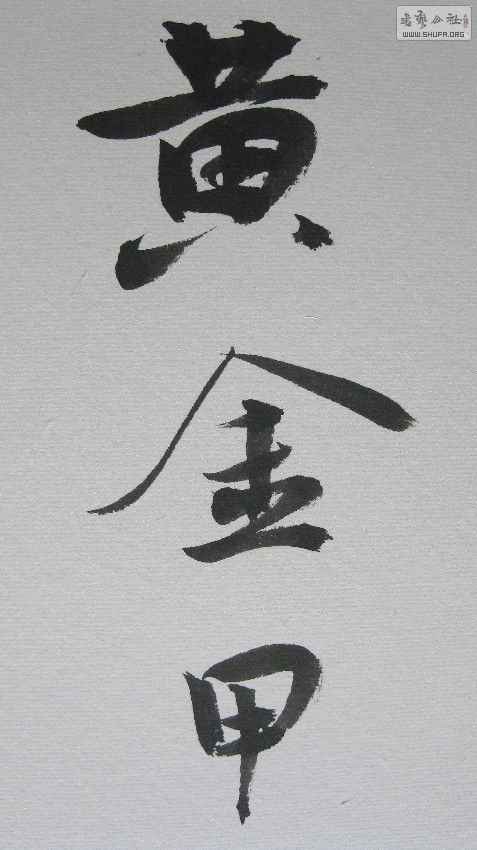 黄金甲
書艺公社
WWW.SHUFA.ORG